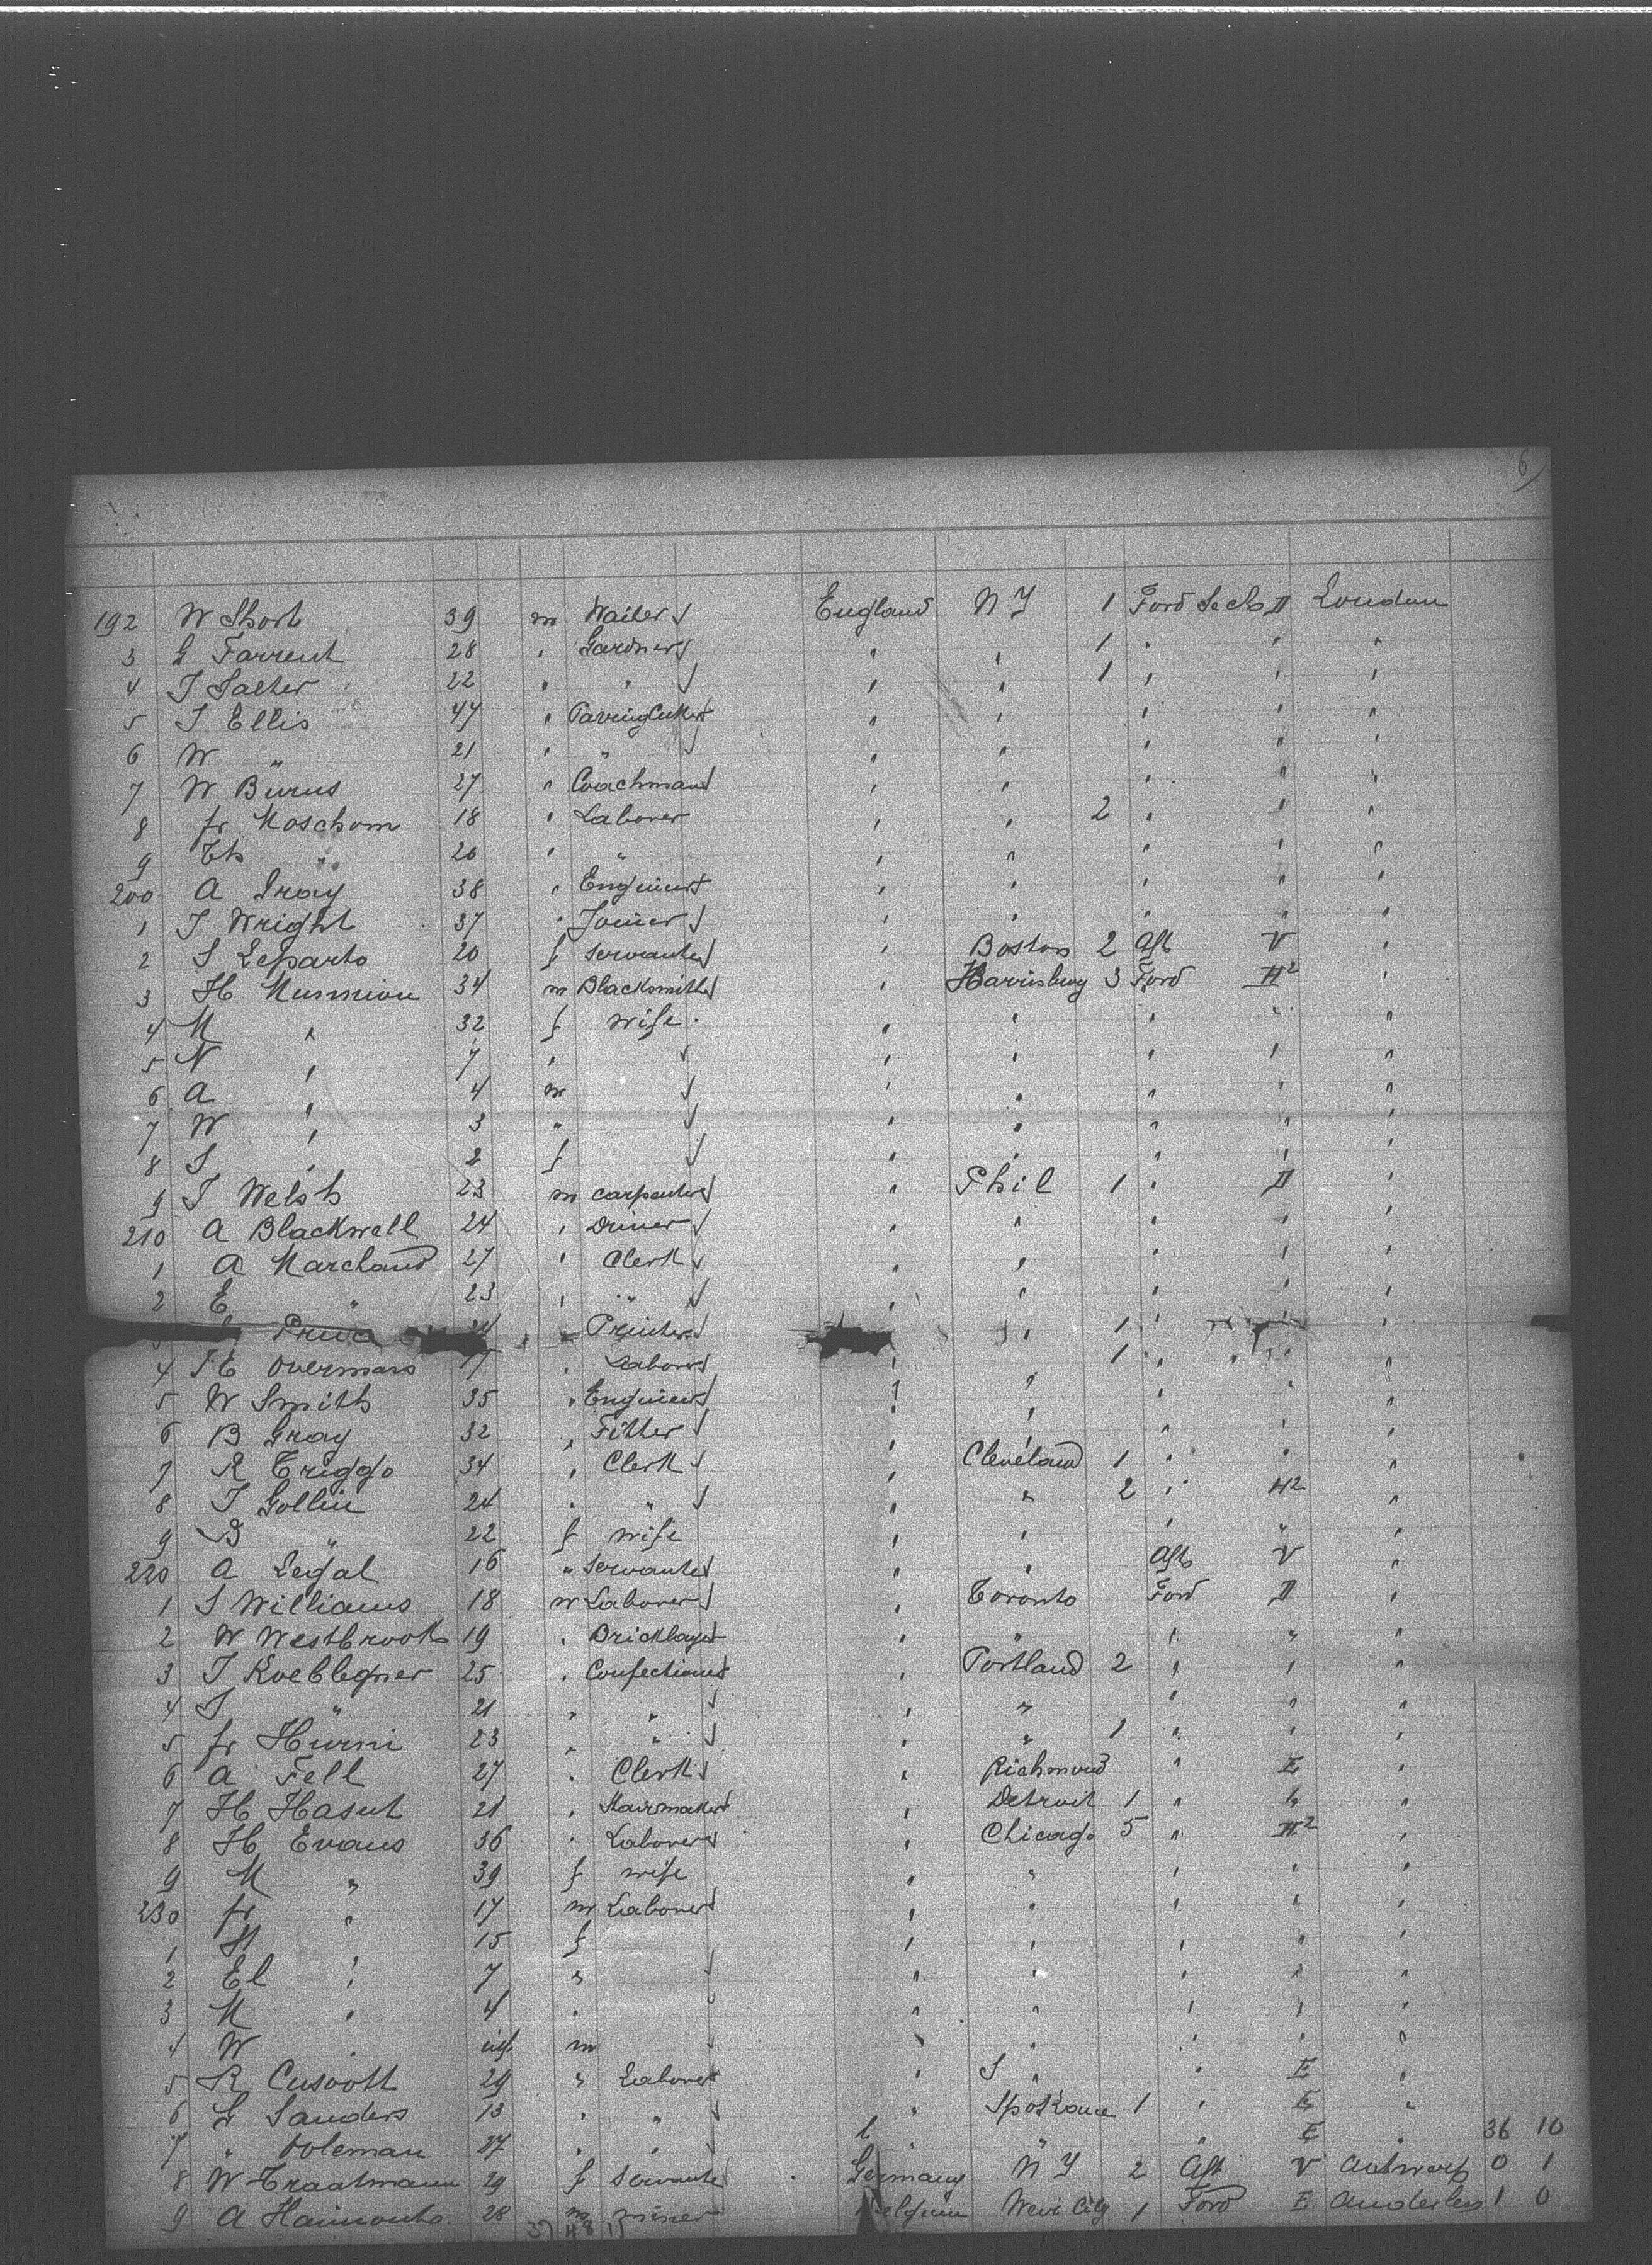 6
192 W Short 39 m Waiter England N Y 1 Ford Sects II London
3 G Farrent 28 " Gardner " " 1 " " "
4 J Salter 22 " " " " 1 " " "
5 J Ellis 47 " " " " " "
6 W " 21 " " " " " " "
7 W Burns 27 " Coachman " " " " "
8 fr Moschom 18 " Laborer " " 2 " " "
9 Th " 20 " " " " " " "
200 A Gray 38 " Engineer " " " " "
1 J Wright 37 " Joiner " " " " "
2 S Leparto 20 f servante " Boston 2 Aft V "
3 H 34 m Blacksmith " Harrisburg 3 Ford H2 "
4 M " 32 f wife " " " " "
5 N " 7 " " " " " "
6 A " 4 m " " " " "
7 W " 3 " " " " " "
8 S " 2 f " " " " "
9 J Welsh 23 m carpenter " Phil 1 " II "
210 A Blackwell 24 " Driver " " " " "
1 A Marchand 27 " Clerk " " " " "
2 E " 23 " " " " " " "
" Printer " 1 " " "
4 Overmars 17 " Laborer " " 1 " " "
5 W Smith 35 " Engineer " " " " "
6 B Gray 32 " Fitter " " " " "
7 R Triggo 34 " Clerk " Cleveland 1 " " "
8 J Gollin 24 " " " " 2 " H2 "
9 B " 22 f wife " " " " "
220 A Legal 16 " servante " " Aft V "
1 S Williams 18 m Laborer " Toronto Ford II "
2 W Westbrook 19 " Bricklayer " " " " "
3 J Koeblegner 25 " Confectioner " Portland 2 " " "
4 S " 21 " " " " " " "
5 fr Hurni 23 " " " " 1 " " "
6 A Fell 27 " Clerk " Richmond " E "
7 H Hasut 21 " " Detroit 1 " " "
8 H Evans 36 " Laborer " Chicago 5 " H2 "
9 M " 39 f wife " " " " "
230 fr " 17 m Laborer " " " " "
1 H " 15 f " " " " "
2 El " 7 " " " " " "
3 M " 4 " " " " " "
4 W " inf m " " " " "
5 R Cusvott 29 " Laborer " S " " E "
6 G Sanders 13 " " " Spokane 1 " E "
7 " Coleman 27 " " " " " E " 36 10
8 W Traatmann 29 f servante Germany N Y 2 Aft V Antwerp 0 1
9 A Hainonts 28 m miner Belgium Weir City 1 Ford E Anderles 1 0
37 48 11